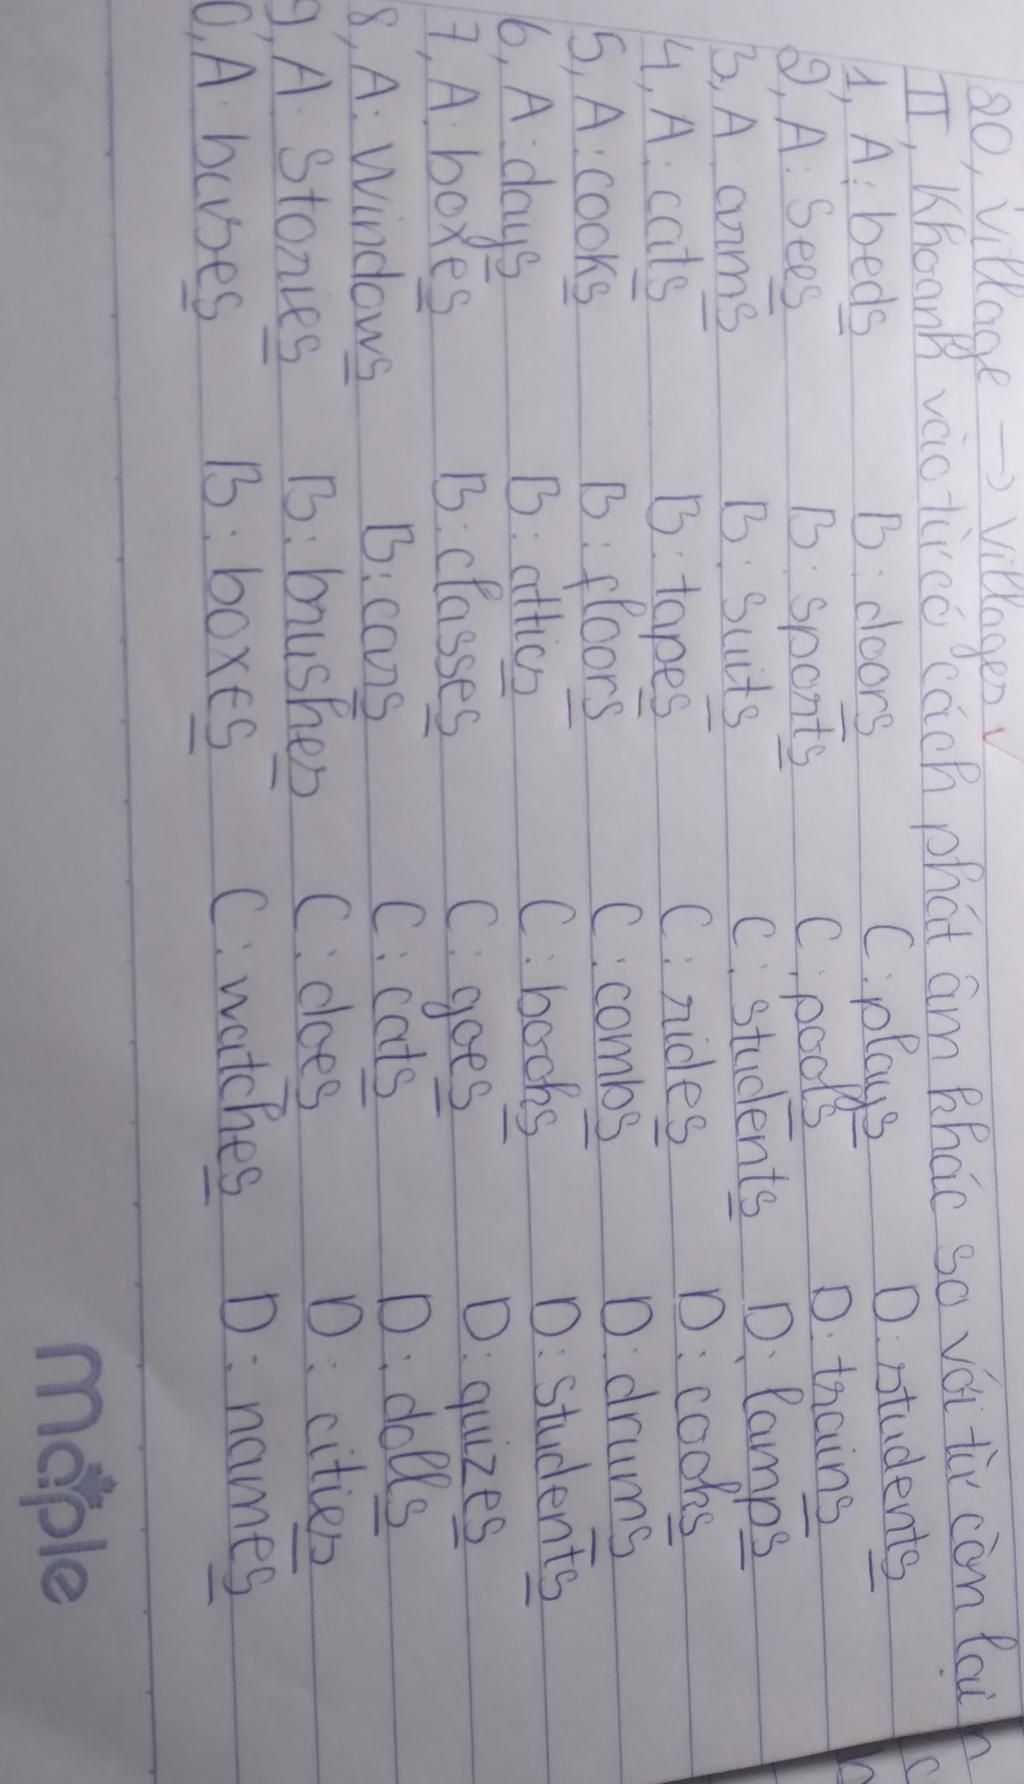 20, Village -> Villages ✓
II, Khoanh vào từ có cách phát âm khác so với từ còn lại
1, A: beds B: doors C: plays D: students
2, A: Sees B: sports C: pools D: trains
3, A: arms B: suits C: students D: lamps
4, A: cats B: tapes C: rides D: cooks
5, A: cooks B: floors C: combs D: drums
6, A: days B: attics C: books D: students
7, A: boxes B: classes C: goes D: quizes
8, A: Windows B: cars C: cats D: dolls
9, A: Stories B: brushes C: does D: cities
0, A: buses B: boxes C: watches D: names
maple